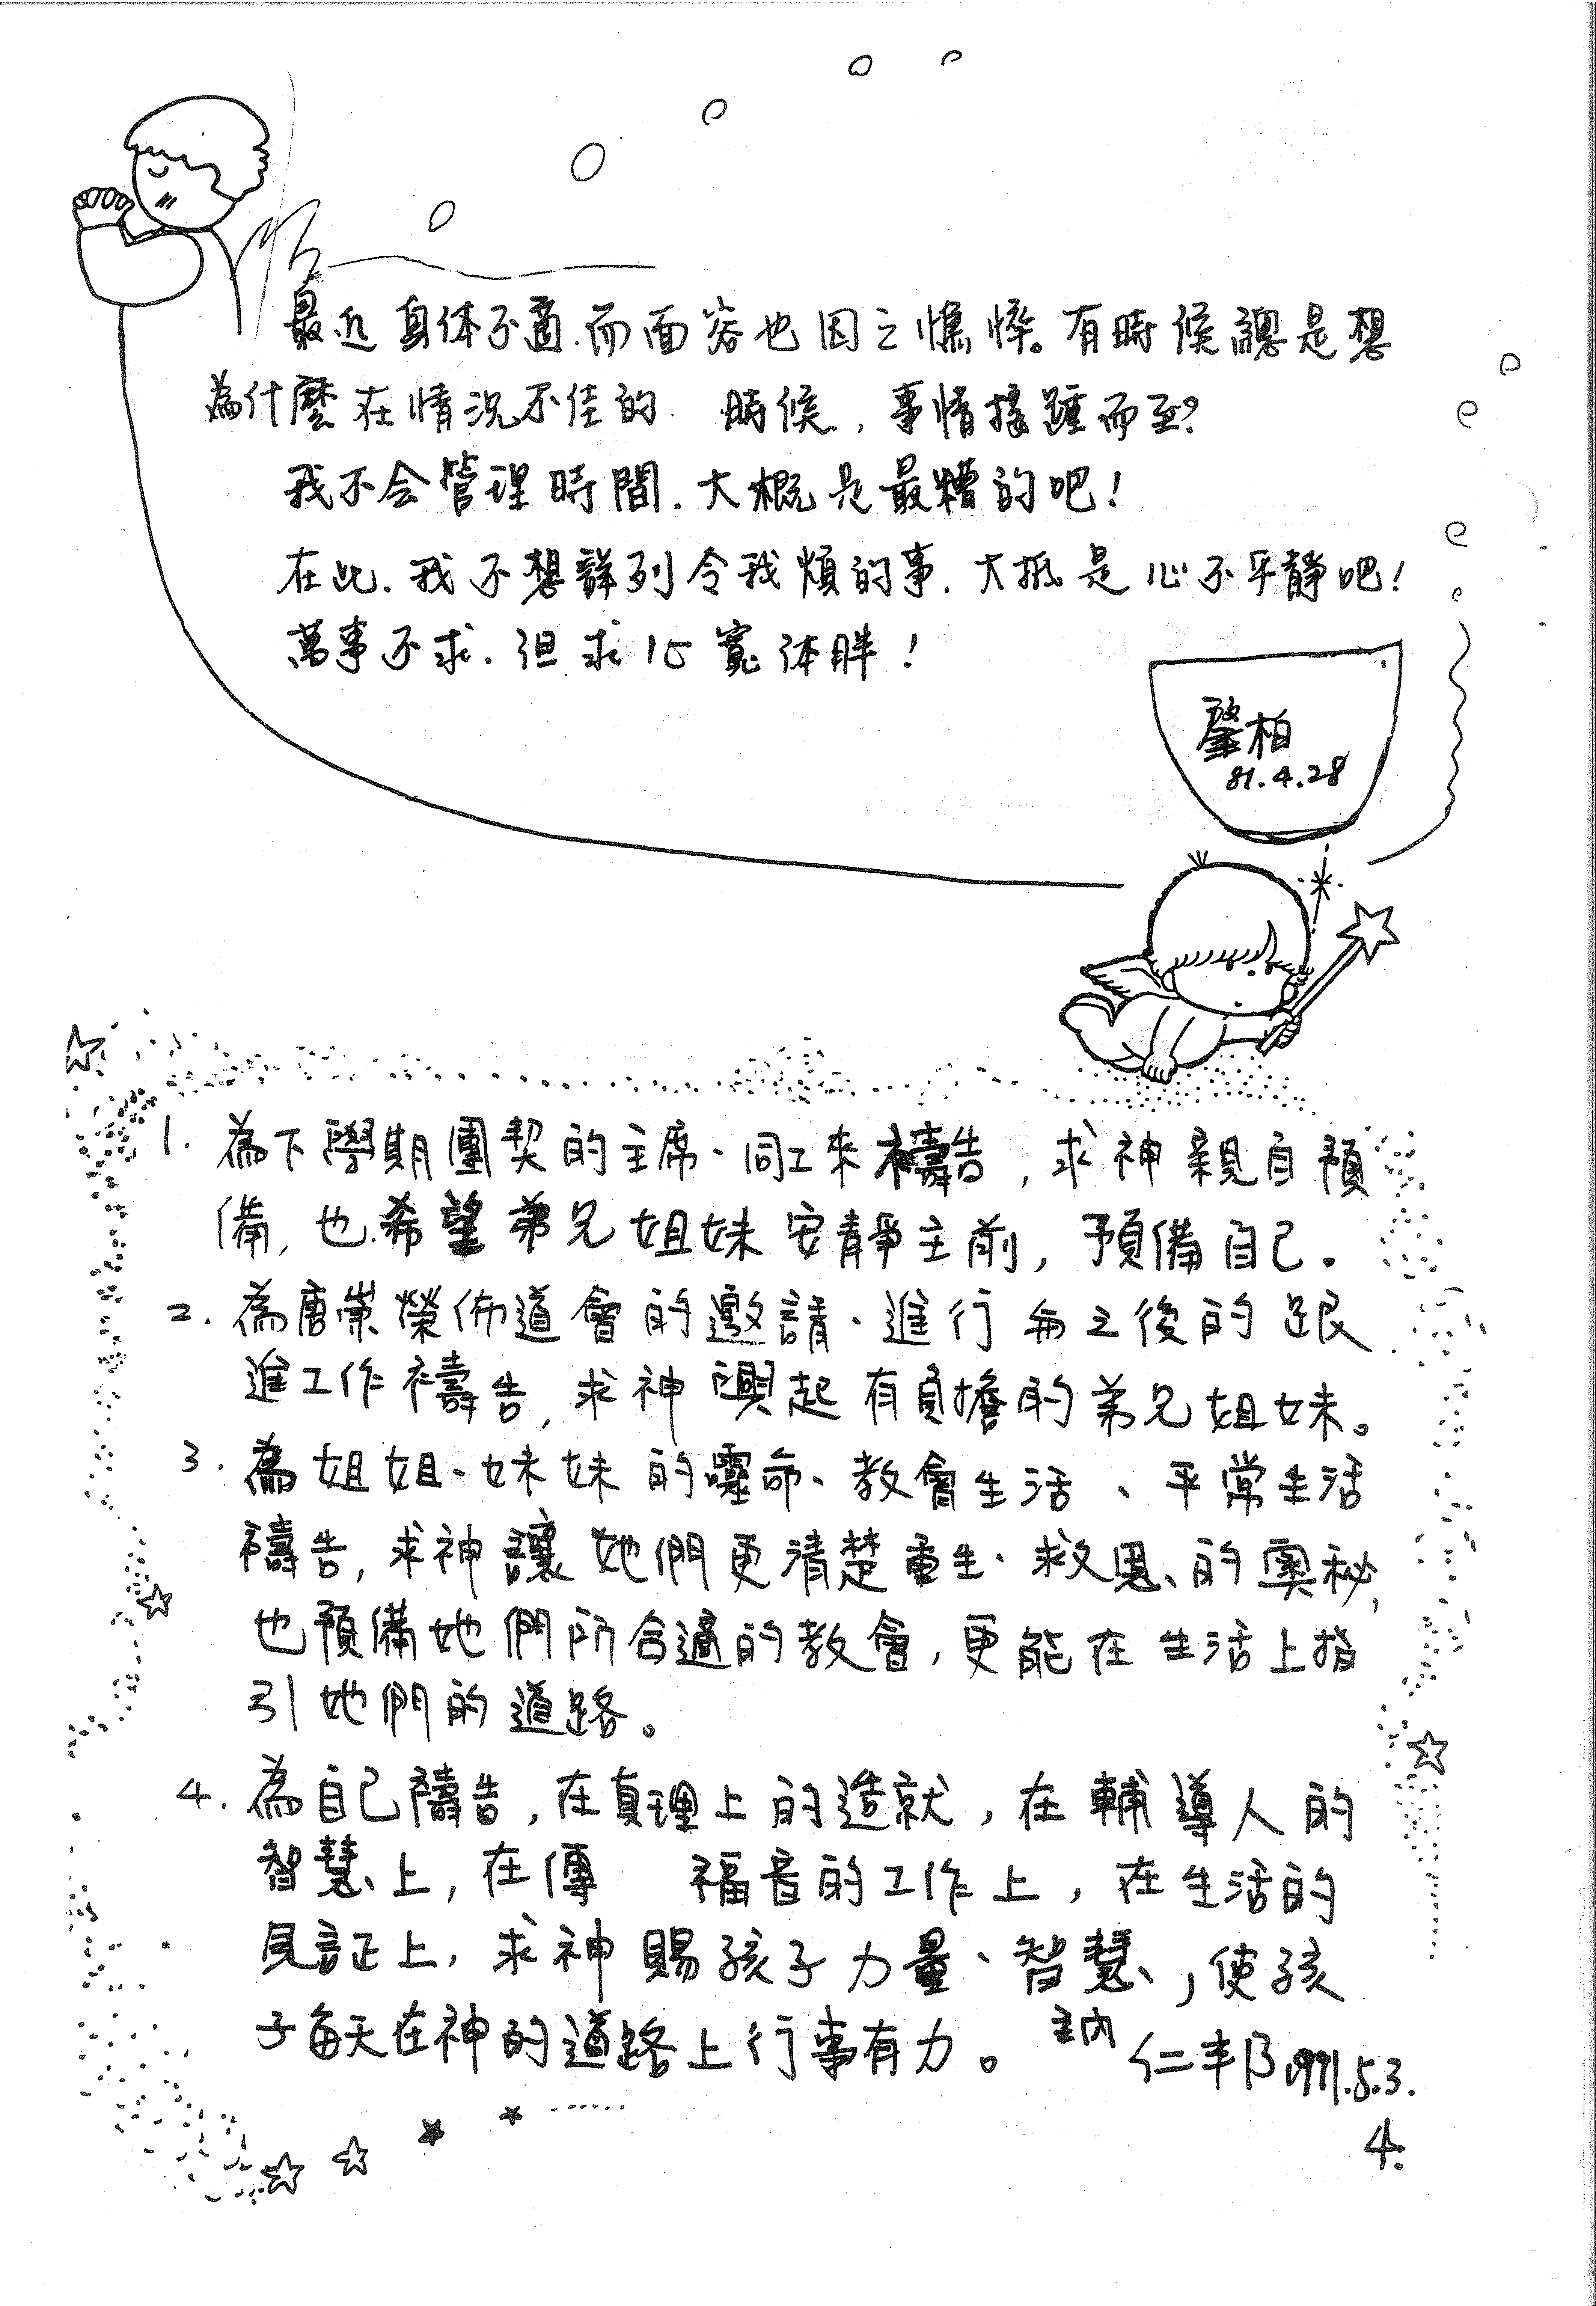 最近身体不適.而面容也因之憔悴。有時候總是想
為什麼在情況不佳的 時候,事情接踵而至?
我不会管理時間.大概是最糟的吧!
在此.我不想詳列令我煩的事.大抵是心不平靜吧!
萬事不求.但求心寬体胖!
肇柏
81.4.28
1. 為下學期團契的主席、同工來禱告,求神親自預
備,也希望弟兄姐妹安靜主前,預備自己。
2. 為唐崇榮佈道會的邀請、進行與之後的跟
進工作禱告,求神興起有負擔的弟兄姐妹。
3. 為姐姐、妹妹的靈命、教會生活、平常生活
禱告,求神讓她們更清楚重生、救恩的奧秘,
也預備她們所合適的教會,更能在生活上指
引她們的道路。
4. 為自己禱告,在真理上的造就,在輔導人的
智慧上,在傳 福音的工作上,在生活的
見証上,求神賜孩子力量、智慧,使孩
子每天在神的道路上行事有力。 主內 仁邦 1991.5.3.
4.